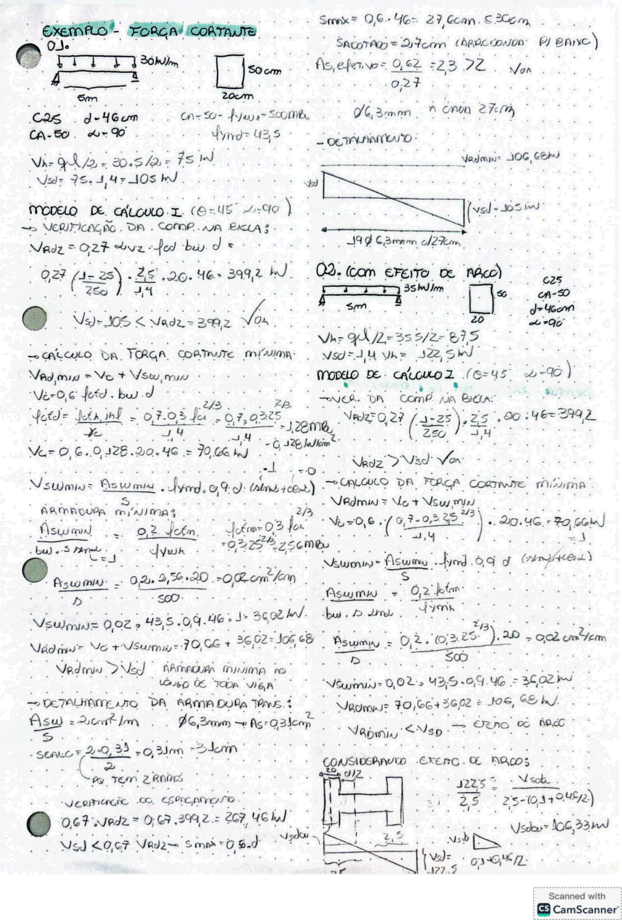 EXEMPLO - FORÇA CORTANTE
01.
30kN/m
5m
50cm
20cm
C25 d=46cm
CA-50 α=90°
fywd=43,5
Vk=ql/2=30.5/2=75 kN
Vsd=75.1,4=105kN
MODELO DE CÁLCULO I (θ=45 α=90)
→ VERIFICAÇÃO DA COMP. NA BIELA:
VRd2=0,27 αv2 . fcd . bw . d =
0,27 (1-25/250) . 2,5/1,4 . 20 . 46 = 399,2 kN
Vsd=105 < VRd2=399,2 √ok
→ CÁLCULO DA FORÇA CORTANTE MÍNIMA:
VRd,min = Vc + Vsw,min
Vc=0,6 fctd . bw . d
fctd = fctk,inf/γc = 0,7.0,3 fck^2/3 / 1,4 = 0,7.0,3.25^2/3 / 1,4 = 1,28MPa
= 0,128kN/cm²
Vc = 0,6 . 0,128 . 20 . 46 = 70,66 kN
=1 =0
Vswmin = Aswmin/s . fywd . 0,9 . d . (senα+cosα)
ARMADURA MÍNIMA:
Aswmin / bw . s senα = 0,2 fctm / fywk
=1
fctm=0,3 fck^2/3
=0,3.25^2/3=2,56MPa
Aswmin/s = 0,2 . 2,56 . 20 / 500 = 0,02cm²/cm
Vswmin = 0,02 . 43,5 . 0,9 . 46 . 1 = 36,02 kN
VRdmin = Vc + Vswmin = 70,66 + 36,02 = 106,68
VRdmin > Vsd ARMADURA MÍNIMA AO
LONGO DE TODA VIGA
→ DETALHAMENTO DA ARMADURA TRANS.:
Asw/s = 2cm²/m Ø6,3mm → As=0,31cm²
scalc = 2.0,31/2 = 0,31m = 31cm
TEM 2 RAMOS
VERIFICAÇÃO DO ESPAÇAMENTO
0,67 . VRd2 = 0,67 . 399,2 = 267,46 kN
Vsd < 0,67 VRd2 → smax = 0,6.d
Smáx = 0,6 . 46 = 27,6cm ≤ 30cm
SADOTADO = 27cm (ARREDONDA P/ BAIXO)
As,efetivo = 0,62/0,27 = 2,3 > 2 √ok
Ø6,3mm A CADA 27cm
→ DETALHAMENTO:
VRdmin=106,68kN
Vsd
Vsd=105kN
19 Ø 6,3mm c/27cm
02. (COM EFEITO DE ARCO)
35kN/m
5m
50
20
C25
CA-50
d=46cm
α=90°
Vk=ql/2=35.5/2=87,5
Vsd=1,4 Vk = 122,5kN
MODELO DE CÁLCULO I (θ=45 α=90)
→ VER. DA COMP. NA BIELA:
VRd2=0,27 (1-25/250) . 2,5/1,4 . 20 . 46 = 399,2
VRd2 > Vsd √ok
→ CÁLCULO DA FORÇA CORTANTE MÍNIMA:
VRdmin = Vc + Vsw,min
Vc=0,6 . (0,7.0,3.25^2/3 / 1,4) . 20.46 = 70,66kN
=1
Vswmin = Aswmin/s . fywd . 0,9 d (senα+cosα)
Aswmin / bw . s senα = 0,2 fctm / fywk
Aswmin/s = 0,2 . (0,3.25^2/3) . 20 / 500 = 0,02cm²/cm
Vswmin = 0,02 . 43,5 . 0,9 . 46 = 36,02 kN
VRdmin = 70,66+36,02 = 106,68 kN
VRdmin < Vsd → EFEITO DO ARCO
CONSIDERANDO EFEITO DE ARCO:
20 d/2
122,5/2,5 = Vsd / 2,5-(0,1+0,46/2)
Vsd = 106,33kN
2,5
Vsd=
122,5
0,1+0,46/2
Scanned with
CS CamScanner